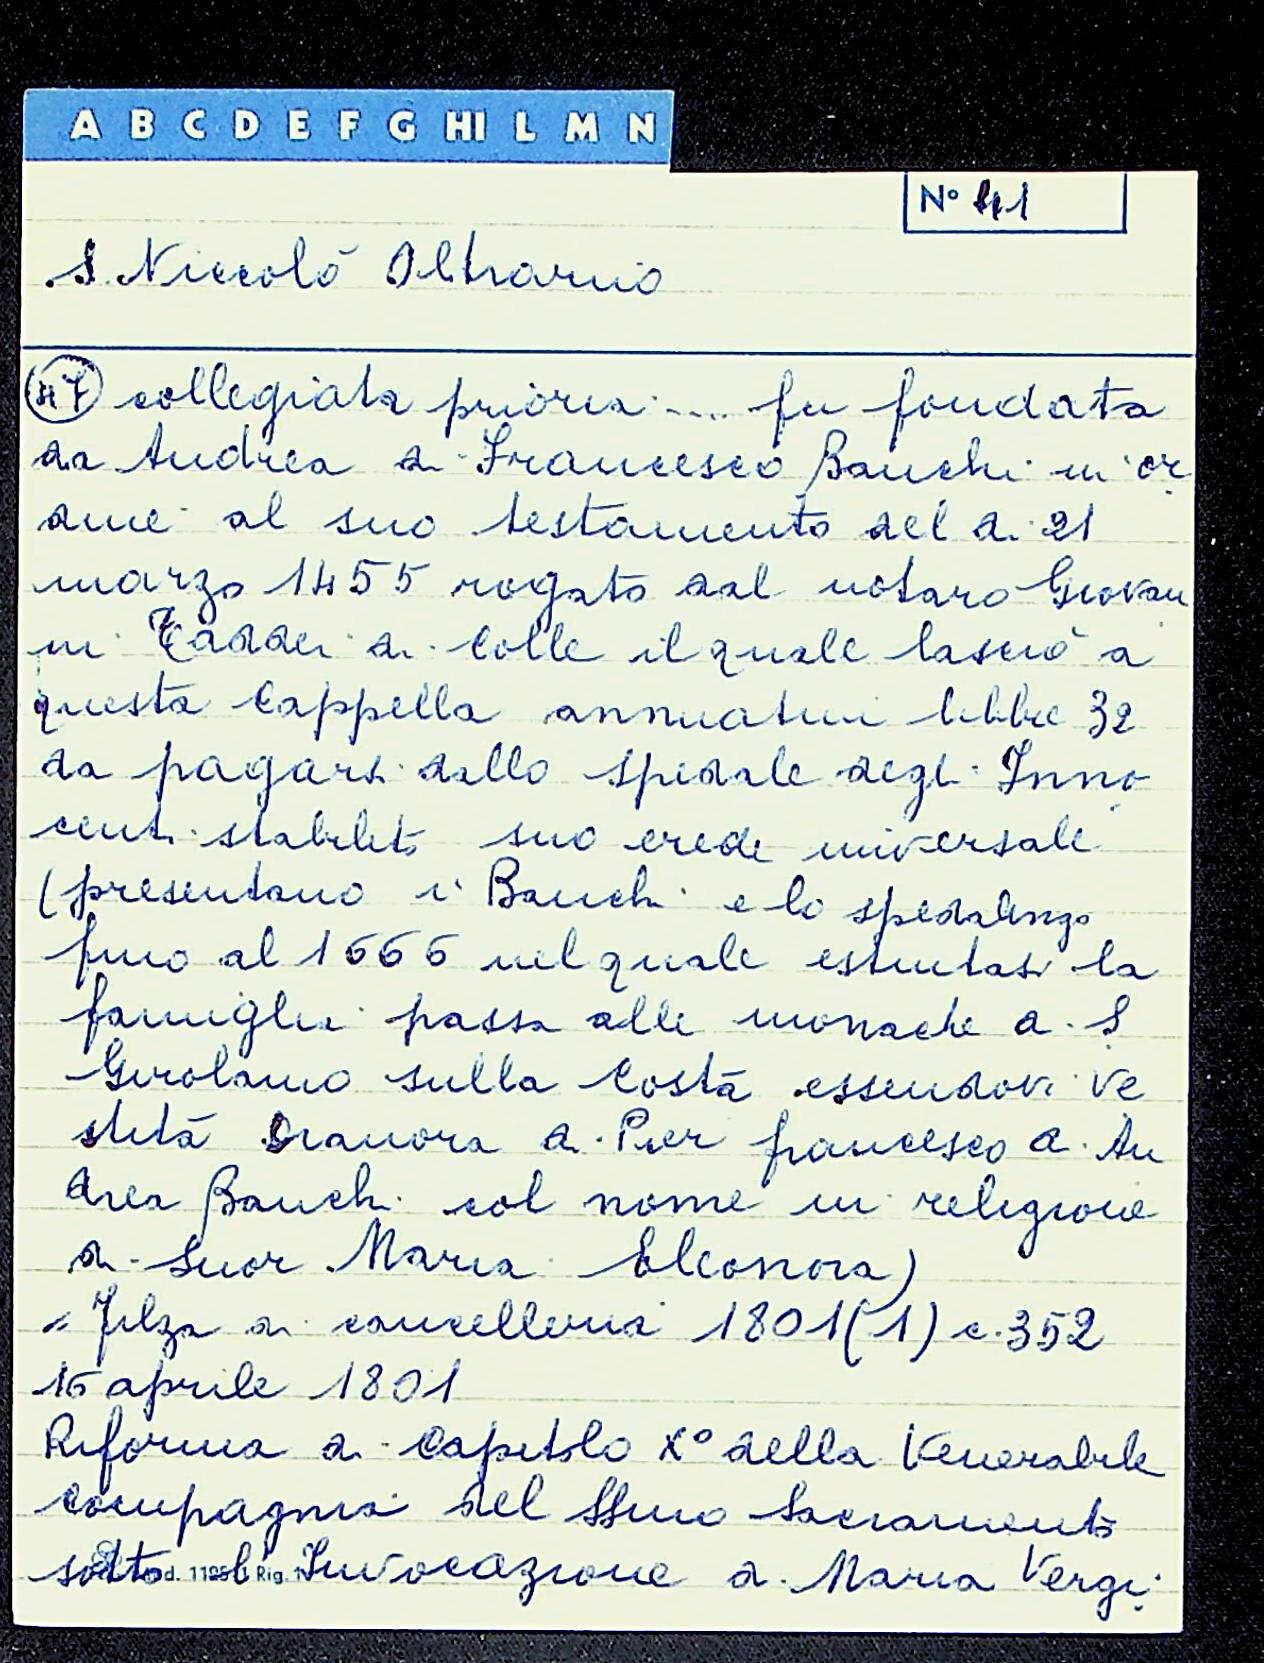 A B C D E F G HI L M N
N° 41
S. Niccolò Oltrarno
47 collegiata prioria .... fu fondata
da Andrea di Francesco Banchi in or
dine al suo testamento del dì 21
marzo 1455 rogato dal notaro Giovan
ni Taddei di Colle il quale lasciò a
questa Cappella annuatim libbre 32
da pagarsi dallo spedale degl' Inno
centi stabilito suo erede universale
(presentano i Banchi e lo spedalingo
fino al 1666 nel quale estintasi la
famiglia passa alle monache di S
Girolamo sulla Costa essendovi ve
stita Dianora di Pier francesco di An
drea Banchi col nome in religione
di Suor Maria Eleonora)
= Filza di cancelleria 1801(1) c.352
16 aprile 1801
Riforma di Capitolo X° della Venerabile
Compagnia del SSmo Sacramento
sotto l'Invocazione di Maria Vergi
d. Rig. 1